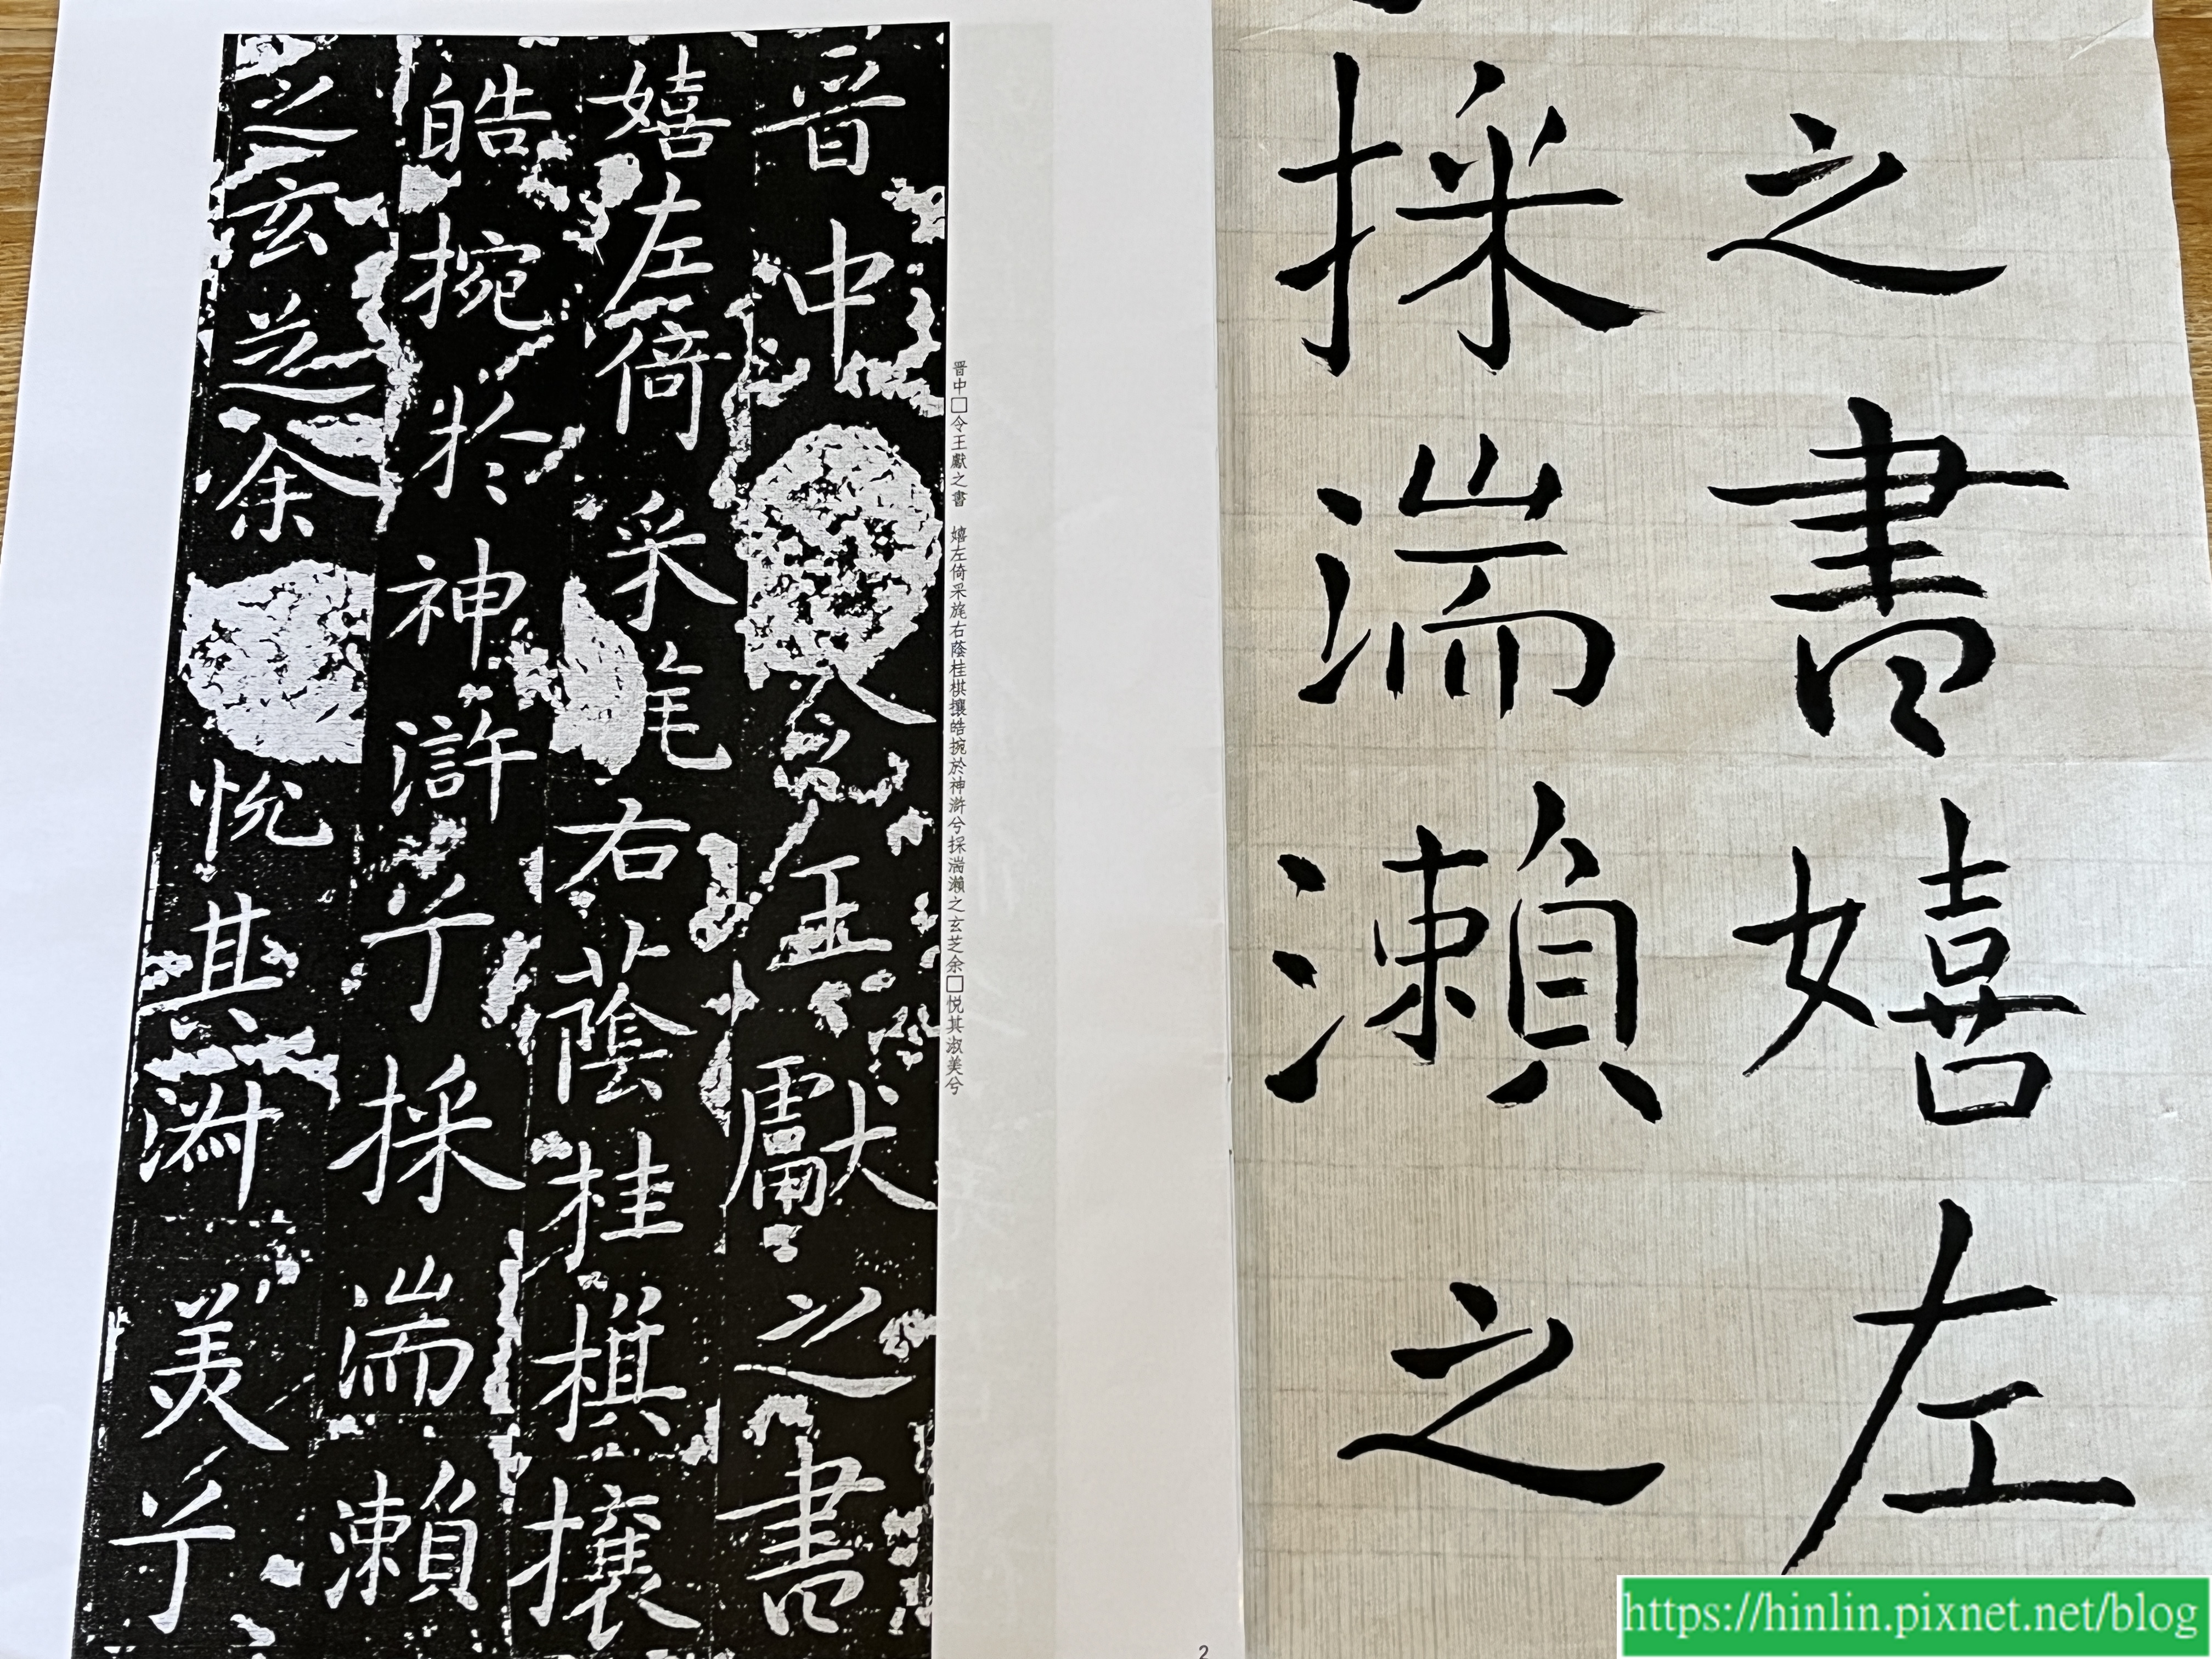 之書嬉左
採湍瀨之
晋中□令王獻之書 嬉左倚采旄右蔭桂棋攘皓捥於神滸兮採湍瀨之玄芝余□悦其淑美兮
晋中令王獻之書
嬉左倚采旄右蔭桂棋攘
皓捥於神滸兮採湍瀨
之玄芝余悦其淑美兮
2
https://hinlin.pixnet.net/blog